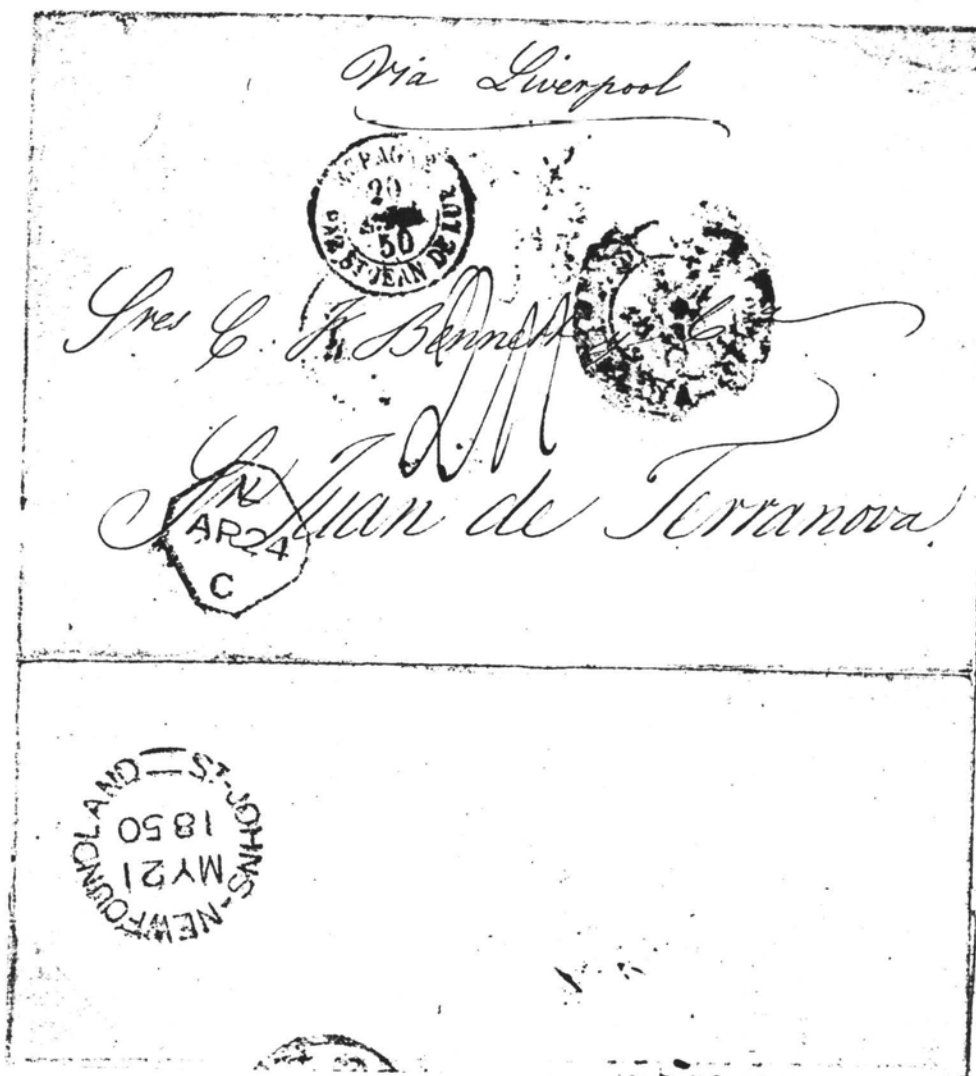 Via Liverpool
ESPAGNE
20
50
PAR ST JEAN DE LUZ
Sres C. F. Bennett y Ca
Sn Juan de Terranova
N
AP24
C
ST JOHNS-NEWFOUNDLAND
MY21
1850